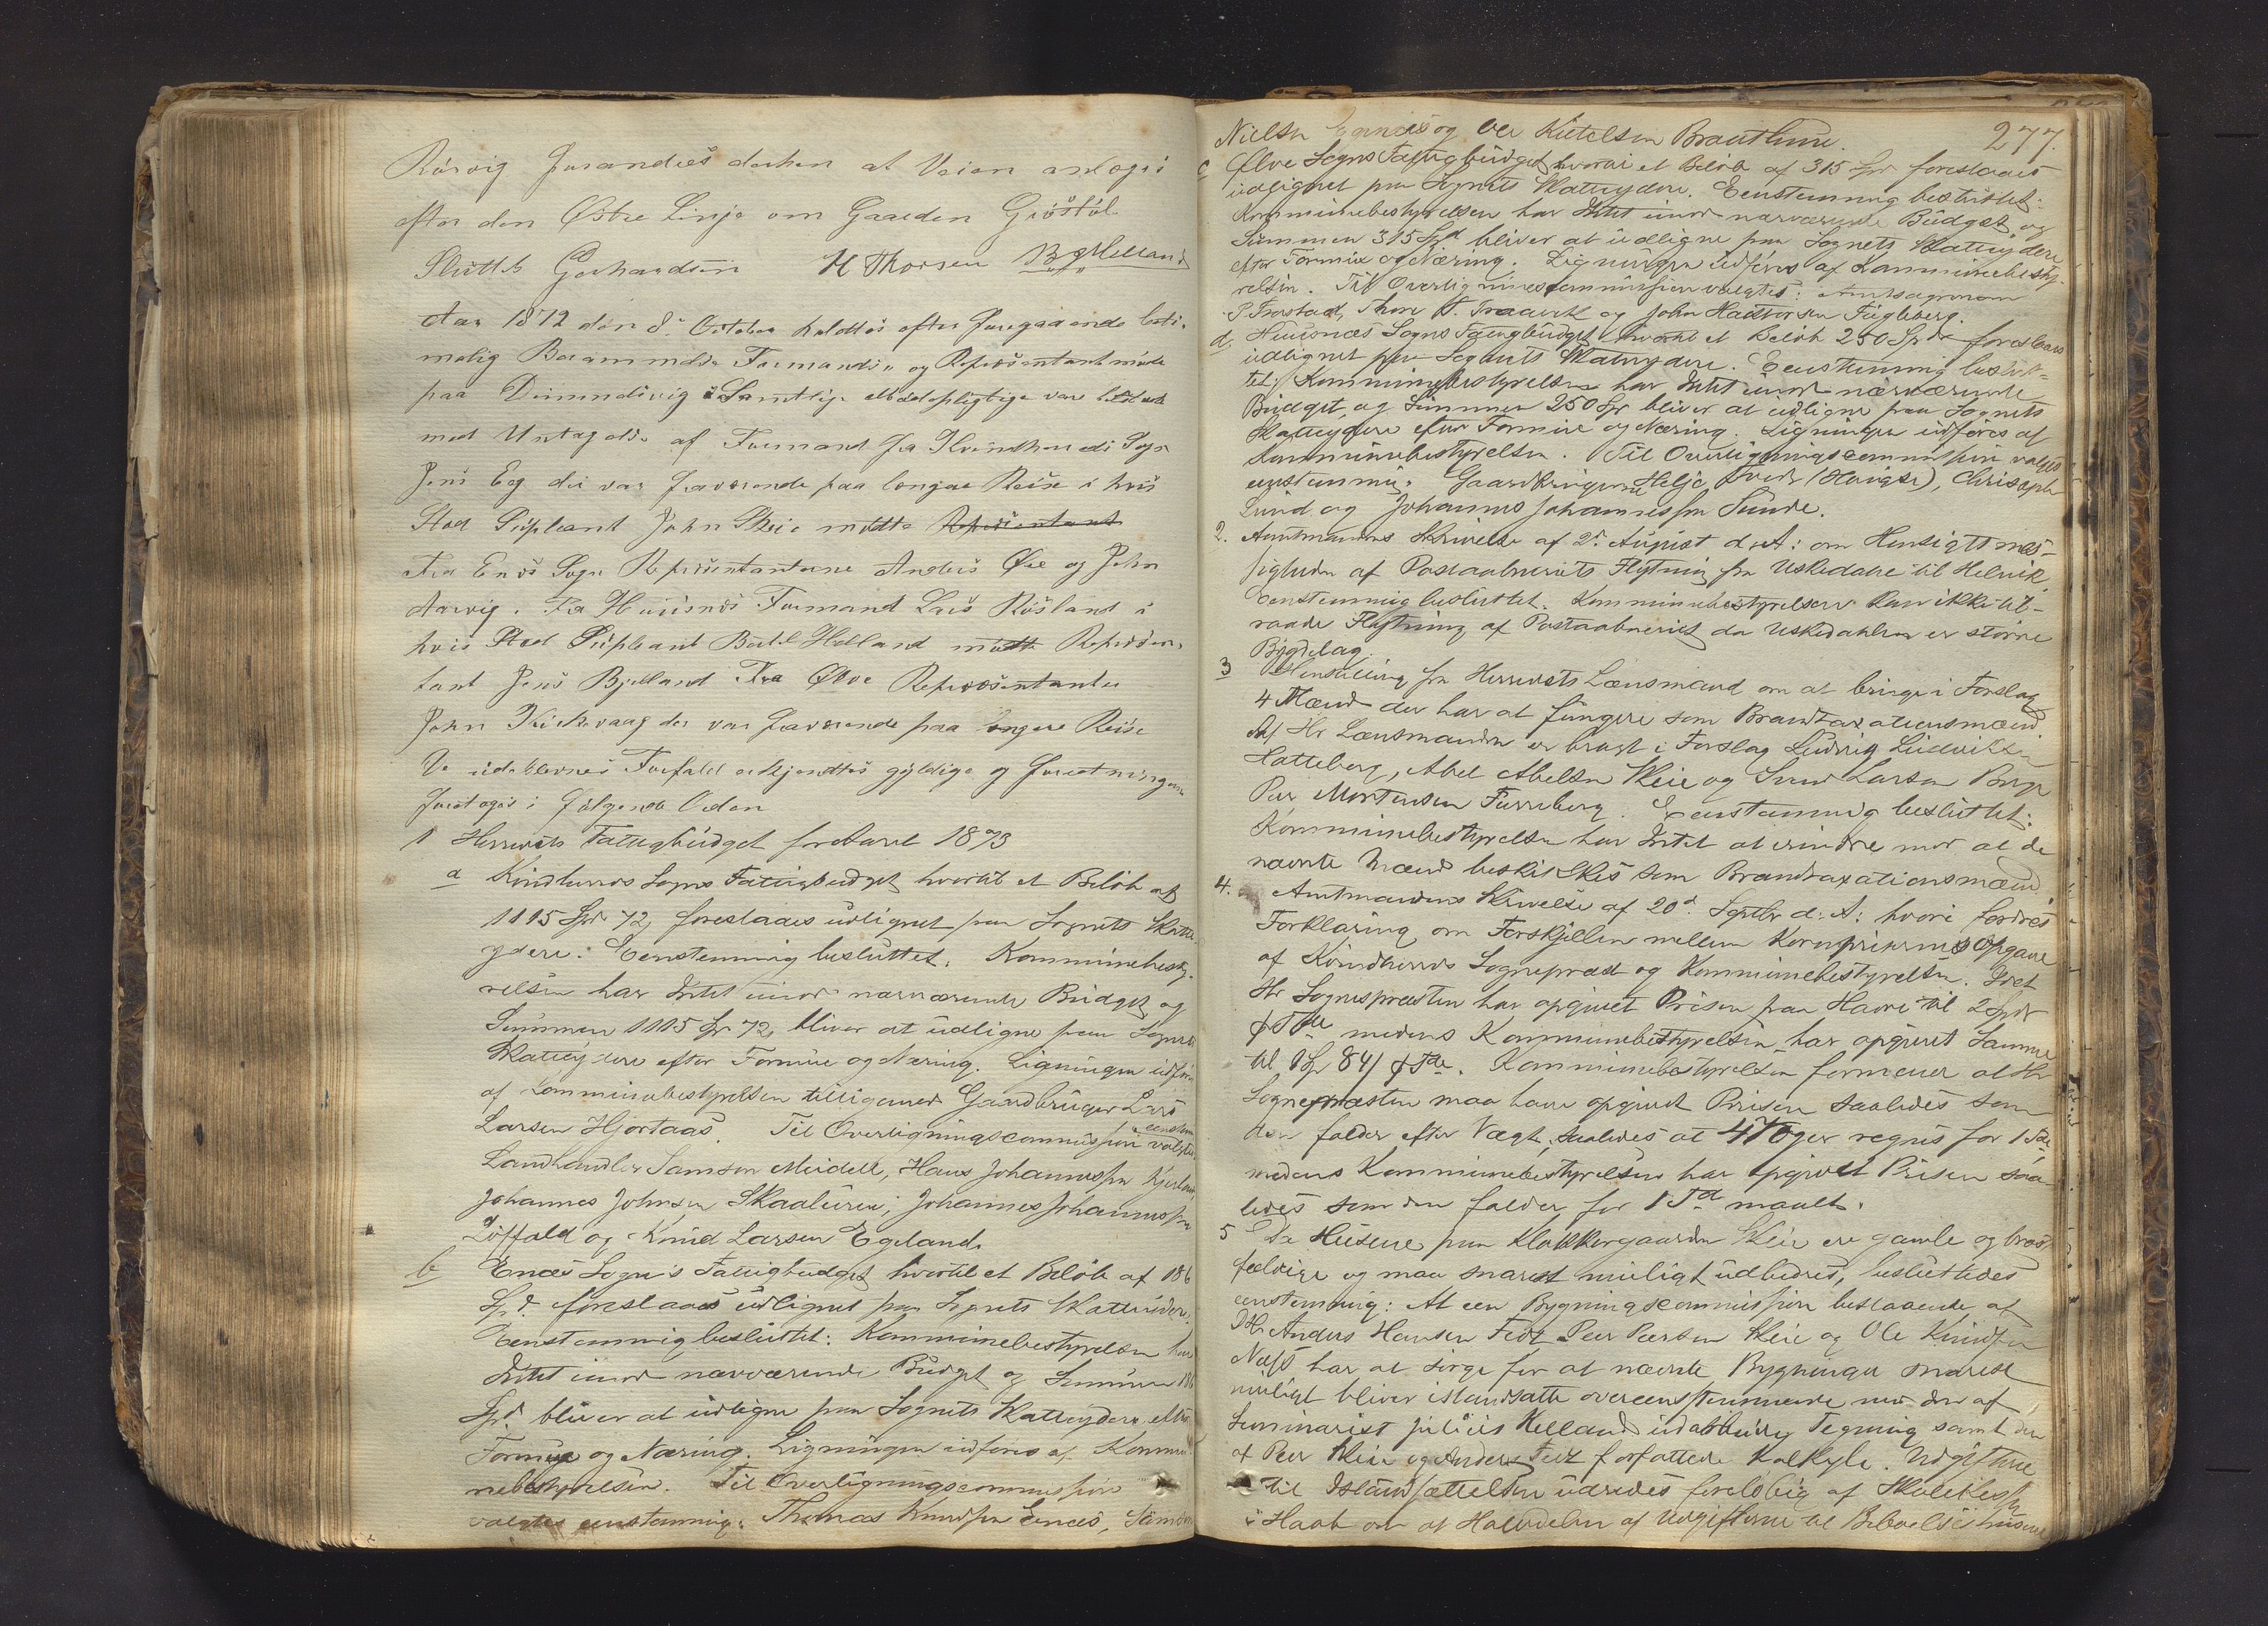 Rörvig foranledes derhen at Veien anlæges
efter den Østre Linje om Gaarden Gjöstöl
Sluttet Gerhardsen H Thorsen B Helland
Aar 1872 den 8de October holdtes efter foregaaende lovl.
malig Berammelse Formands og Repræsentantmöde
paa Dimmelsvig Samtlige mödepligtige vare tilstede
med Undtagelse af Formand fra Kvindherreds Sogn
Jens Eeg der var fraværende paa længere Reise i hvis
Sted Supleant John Skeie mödte Repræsentant
Fra Enæs Sogn Repræsentanterne Anders Øie og John
Aarvig. Fra Huusnæs Formand Lars Rösland i
hvis Sted Supleant Bertel Helland mödte Repræsen,
tant Jens Bjelland Fra Ølve Repræsentanten
John Kirkevaag der var fraværende paa længere Reise
De udeblevnes Forfald erkjendtes gyldige og Forretningen
foretoges i fölgende Orden
1 Herredets Fattigbudget for Aaret 1873
a Kvindherreds Sogns Fattigbudget hvortil et Belöb af
1115 Spd 72 foreslaaes udlignet paa Sognets Skatte
ydere. Eenstemmig besluttet. Kommunebesty-
relsen har Intet imod nærværende Budget og
Summen 1115 Spd 72 bliver at udligne paa Sognets
Skatteydere efter Formue og Næring. Ligningen udföres
af Kommunebestyrelsen tilligemed Gaardbruger Lars
Larsen Hjortaas. Til Overligningscommission eenstem. valgtes
Landhandler Samson Meidell, Hans Johannessen Kjerland,
Johannes Johnsen Skaaluren, Johannes Johannessen
Löffald og Knud Larsen Egeland.
b Enæs Sogn's Fattigbudget hvortil et Belöb af 186
Spd. foreslaaes udlignet paa Sognets Skatteydere.
Eenstemmig besluttet: Kommunebestyrelsen har
Intet imod nærværende Budget og Summen 186
Spd. bliver at udligne paa Sognets Skatteydere efter
Formue og Næring. Ligningen udföres af Kommu
nebestyrelsen. Til Overligningscommission
valgtes eenstemmig: Thomas Knudsen Enæs,
277.
Nielsen Enæs og Ole Kittelsen Brauthune.
c Ølve Sogns Fattigbudget hvorved et Belöb af 315 Spd foreslaaes
udlignet paa Sognets Skatteydere. Eenstemmig besluttet:
Kommunebestyrelsen har Intet imod nærværende Budget, og
Summen 315 Spd bliver at udligne paa Sognets Skatteydere
efter Formue og Næring. Ligningen udföres af Kommunebesty-
relsen. Til Overligningscommission valgtes: Amtsagronom
P. Frostad, Thore T. Traavik og John Hadtvorsen Fugleberg.
d. Huusnæs Sogns Fattigbudget hvortil et Belöb 250 Spd foreslaaes
udlignet paa Sognets Skatteydere. Eenstemmig beslut-
tet, Kommunebestyrelsen har Intet imod nærværende
Budget og Summen 250 Spd bliver at udligne paa Sognets
Skatteydere efter Formue og Næring. Ligningen udföres af
Kommunebestyrelsen. Til Overligningscommission valgtes
eenstemmig: Gaardbrugerne Helje Tveit (Haugse), Christopher
Lund og Johannes Johannessen Sunde.
2. Amtmandens Skrivelse af 2d August d. A: om Hensigtsmæs-
sigheden af Postaabneriets Flytning fra Uskedalen til Helvik
eenstemmig besluttet. Kommunebestyrelsen kan ikke til-
raade Flytning af Postaabneriet da Uskedahlen er större
Bygdelag.
3 Henstilling fra Herredets Lensmand om at bringe i Forslag
4 Mænd der har at fungere som Brandtaxationsmænd.
Af Hr Lensmanden er bragt i Forslag Ludvig Ludvigsen
Hatteberg, Abel Abelsen Skeie og Svend Larsen Borge
Peer Mortensen Furreberg. Eenstemmig besluttet:
Kommunebestyrelsen har Intet at erindre mod at de
nævnte Mænd beskikkes som Brandtaxationsmænd.
4. Amtmandens Skrivelse af 20d Septbr d: A: hvori fordres
Forklaring om Forskjellen mellem Kornprisernes Opgave
af Kvindherreds Sogneprest og Kommunebestyrelsen. Idet
Hr Sognepresten har opgivet Prisen paa Havre til 2 Spd
pr Tde medens Kommunebestyrelsen har opgivet Samme
til 1 Spd 84 / pr Tde. Kommunebestyrelsen formener at Hr
Sognepresten maa have opgivet Prisen saaledes som
den falder efter Vægt, saaledes at 4 Voger regnes for 1 Tde
medens Kommunebestyrelsen har opgivet Prisen saa-
ledes som den falder for 1 Td maalt.
5 Da Husene paa Klokkergaarden Skeie ere gamle og bröst-
fældige og maa snarest muligt udbedres, besluttedes
eenstemmig: At een Bygningscommission bestaaende af
DHr Anders Hansen Feet Peer Peersen Skeie og Ole Knudsen
Næss har at sörge for at nævnte Bygninger snarest
muligt bliver istandsatte overeensstemmende med den af
Seminarist Julius Helland udarbeidet Tegning samt den
af Peer Skeie og Anders Feet forfattede Kalkyle. Udgifterne
til Istandsættelsen udredes foreløbig af Skolekassen
i Haab om at Halvdelen af Udgifterne til Beboelseshusene